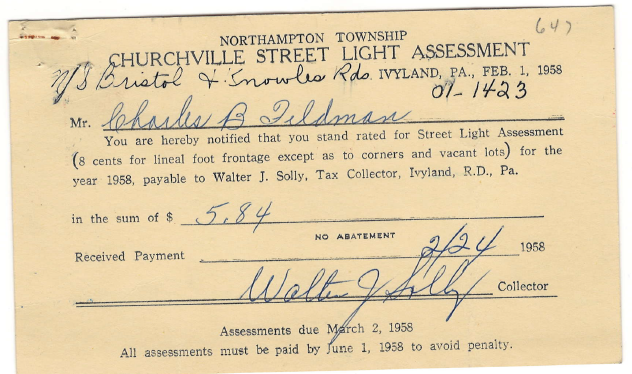 NORTHAMPTON TOWNSHIP
647
CHURCHVILLE STREET LIGHT ASSESSMENT
N/S Bristol & Knowles Rds. IVYLAND, PA., FEB. 1, 1958
01-1423
Mr. Charles B Feldman
You are hereby notified that you stand rated for Street Light Assessment
(8 cents for lineal foot frontage except as to corners and vacant lots) for the
year 1958, payable to Walter J. Solly, Tax Collector, Ivyland, R.D., Pa.
in the sum of $ 5.84
NO ABATEMENT
Received Payment 2/24 1958
Walter J Solly Collector
Assessments due March 2, 1958
All assessments must be paid by June 1, 1958 to avoid penalty.